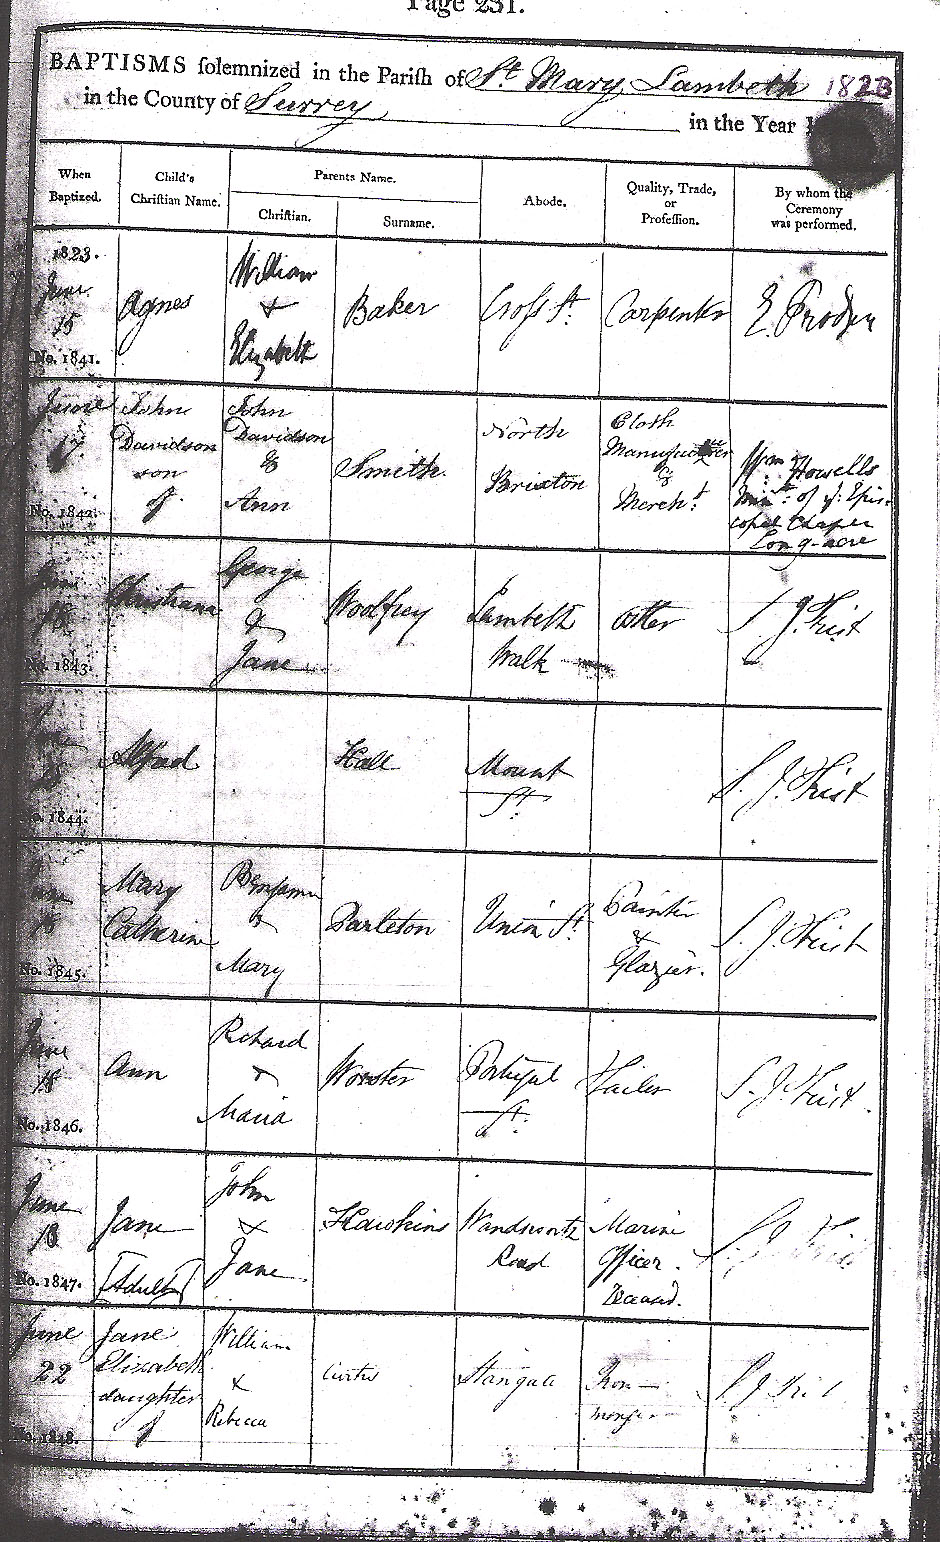 Page 231.
BAPTISMS solemnized in the Parish of St. Mary Lambeth 1823
in the County of Surrey in the Year 1
When
Baptized.
Child's
Christian Name.
Parents Name.
Christian.
Surname.
Abode.
Quality, Trade,
or
Profession.
By whom the
Ceremony
was performed.
1823.
June
15
No. 1841.
Agnes
William
&
Elizabeth
Baker
Cross St.
Carpenter
June
17
No. 1842.
John
Davidson
son
of
John
Davidson
&
Ann
Smith
North
Brixton
Cloth
Manufacturer
&
Mercht.
Wm. Howells
Minr. of ye. Epis-
copal Chapel
Long-acre
June
18
No. 1843.
Christiana
George
&
Jane
Woolfrey
Lambeth
Walk
S. J. Frist
No. 1844.
Alfred
Hall
Mount
St.
S. J. Frist
June
18
No. 1845.
Mary
Catherine
Benjamin
&
Mary
Parleton
Union St.
Painter
&
Glazier.
S. J. Frist
June
18
No. 1846.
Ann
Richard
&
Maria
Worster
Portugal
St.
S. J. Frist.
June
18
No. 1847.
Jane
[Adult]
John
&
Jane
Hawkins
Wandsworth
Road
Marine
Officer.
Deceased.
S. J. Frist
June
22
No. 1848.
Jane
Elizabeth
daughter
of
William
&
Rebecca
Curtis
Stangate
Iron-
monger
S. J. Frist